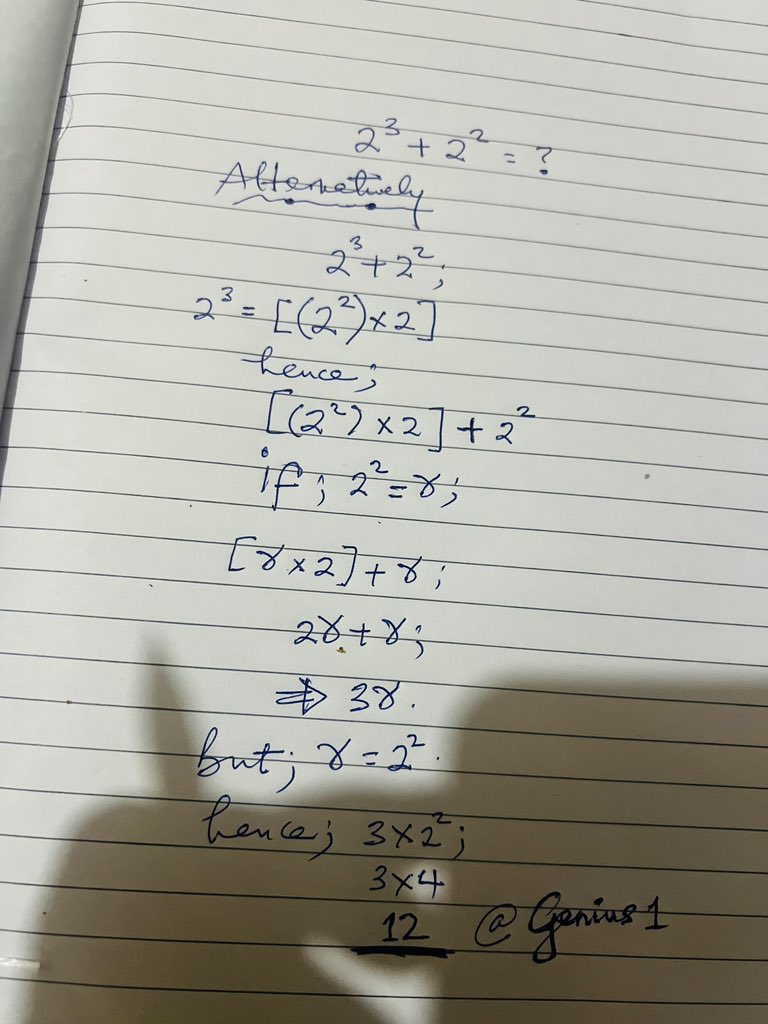 2³ + 2² = ?
Alternatively
2³ + 2²;
2³ = [(2²) × 2]
hence;
[(2²) × 2] + 2²
if; 2² = γ;
[γ × 2] + γ;
2γ + γ;
⇒ 3γ.
but; γ = 2².
hence; 3 × 2²;
3 × 4
12 @ Genius 1